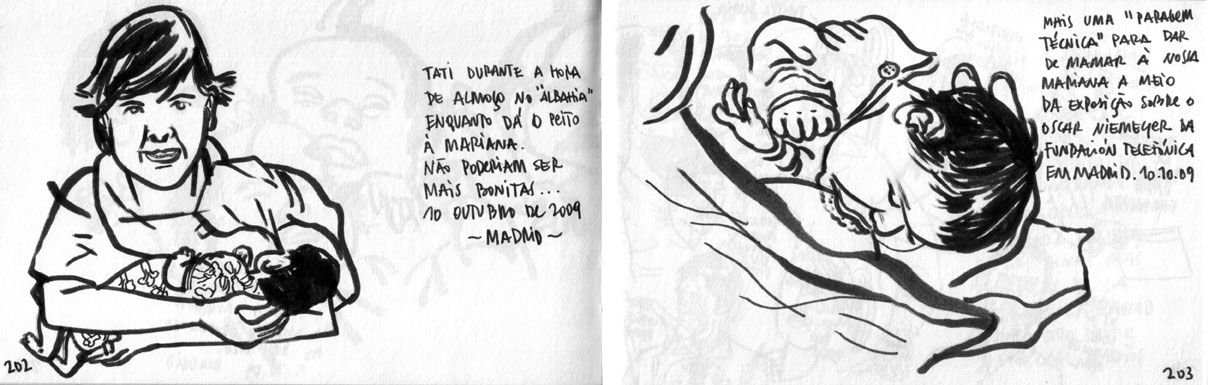 TATI DURANTE A HORA
DE ALMOÇO NO "ALBAHIA"
ENQUANTO DÁ O PEITO
À MARIANA.
NÃO PODERIAM SER
MAIS BONITAS...
10 OUTUBRO DE 2009
~MADRID~
202
MAIS UMA "PARAGEM
TÉCNICA" PARA DAR
DE MAMAR À NOSSA
MARIANA A MEIO
DA EXPOSIÇÃO SOBRE O
OSCAR NIEMEYER DA
FUNDACIÓN TELEFÓNICA
EM MADRID. 10.10.09
203